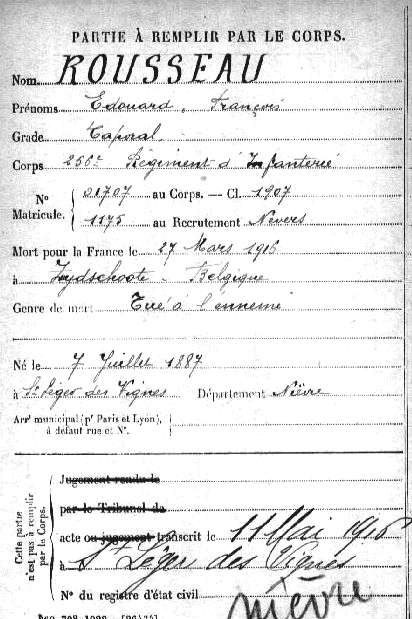 PARTIE À REMPLIR PAR LE CORPS.
Nom ROUSSEAU
Prénoms Edouard, François
Grade Caporal
Corps 256e Régiment d'Infanterie
No 21707 au Corps. — Cl. 1907
Matricule. 1175 au Recrutement Nevers
Mort pour la France le 27 Mars 1916
à Zuydschoote - Belgique
Genre de mort Tué à l'ennemi
Né le 7 Juillet 1887
à St Léger des Vignes Département Nièvre
Arrt municipal (pr Paris et Lyon),
à défaut rue et No.
Cette partie
n'est pas à remplir
par le Corps.
Jugement rendu le
par le Tribunal de
acte ou jugement transcrit le 11 Mai 1916
à St Léger des Vignes
No du registre d'état civil
Nièvre